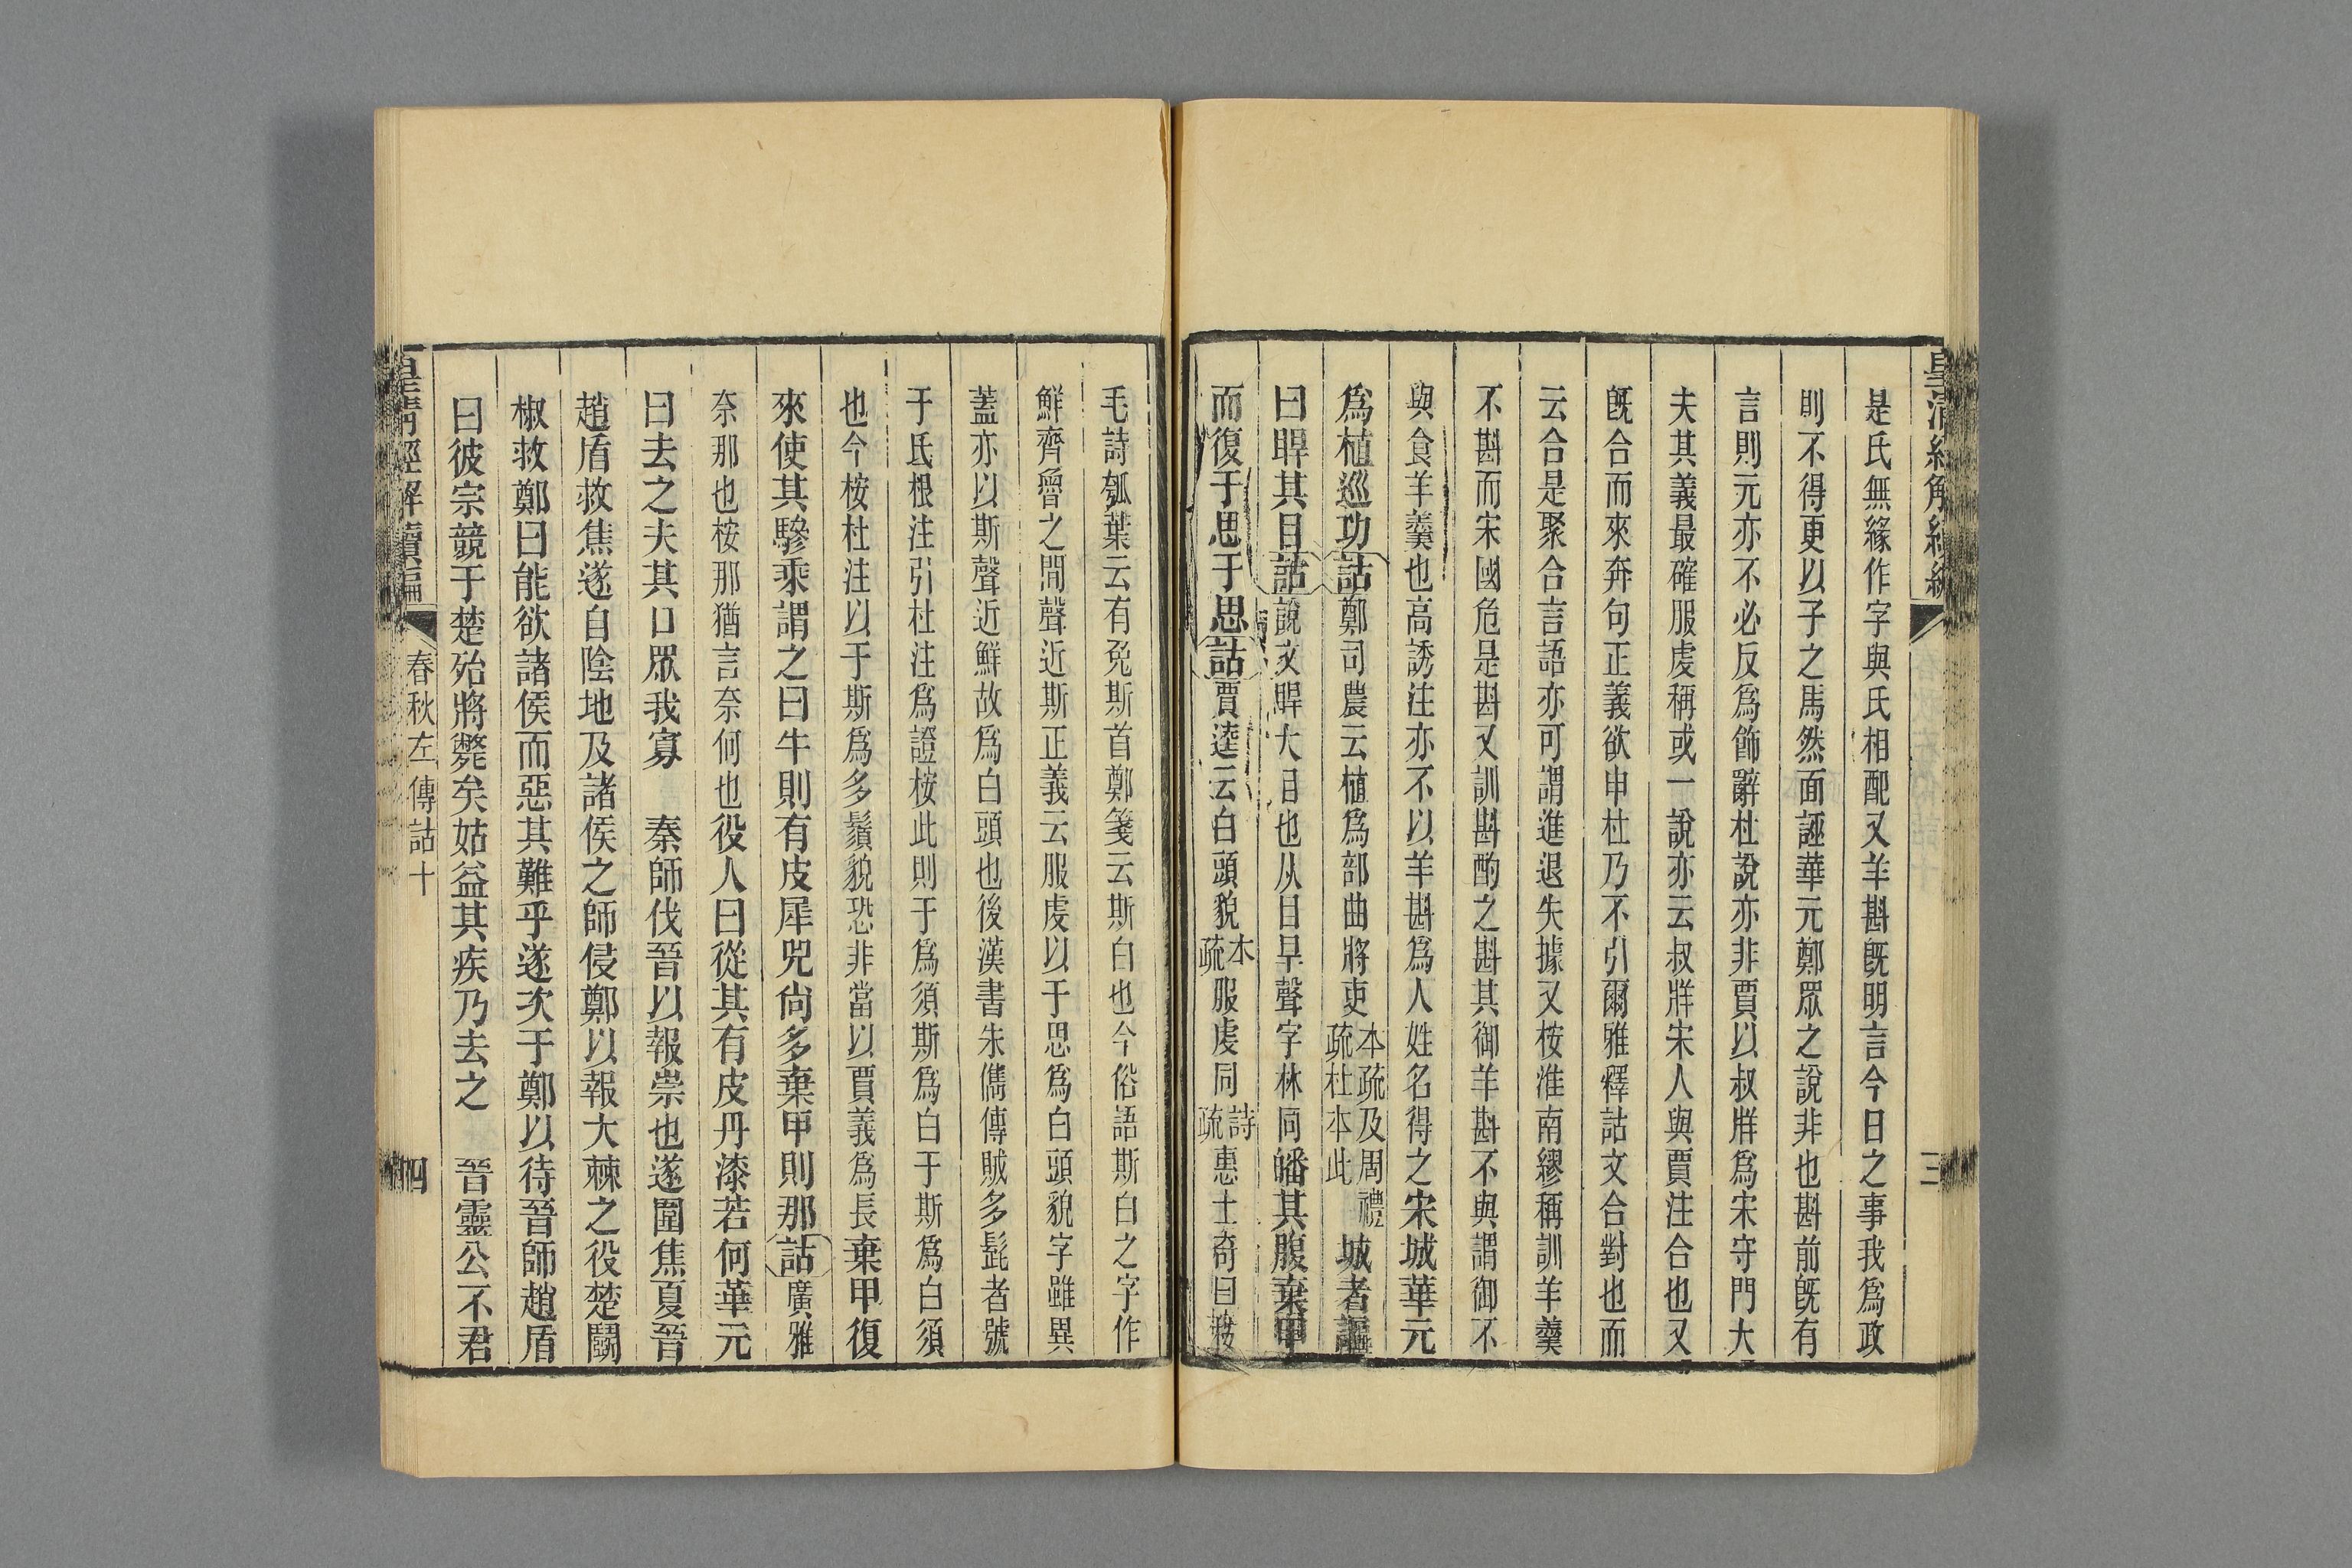 皇清經解續編
三
是氏無緣作字與氏相配又羊斟旣明言今日之事我爲政
則不得更以子之馬然面誣華元鄭眾之說非也斟前旣有
言則元亦不必反爲飾辭杜說亦非賈以叔牂爲宋守門大
夫其義最確服虔稱或一說亦云叔牂宋人與賈注合也又
旣合而來奔句正義欲申杜乃不引爾雅釋詁文合對也而
云合是聚合言語亦可謂進退失據又桉淮南繆稱訓羊羹
不斟而宋國危是斟又訓斟酌之斟其御羊斟不與謂御不
與食羊羹也高誘注亦不以羊斟爲人姓名得之宋城華元
爲植巡功詁鄭司農云植爲部曲將吏本疏及周禮疏杜本此城者謳
曰睅其目詁說文睅大目也从目旱聲字林同皤其腹棄甲
而復于思于思詁賈逵云白頭貌本疏服虔同詩疏惠士奇曰桉
毛詩瓠葉云有兔斯首鄭箋云斯白也今俗語斯白之字作
鮮齊魯之間聲近斯正義云服虔以于思爲白頭貌字雖異
蓋亦以斯聲近鮮故爲白頭也後漢書朱儁傳賊多髭者號
于氐根注引杜注爲證桉此則于爲須斯爲白于斯爲白須
也今桉杜注以于斯爲多鬚貌恐非當以賈義爲長棄甲復
來使其驂乘謂之曰牛則有皮犀兕尙多棄甲則那詁廣雅
奈那也桉那猶言奈何也役人曰從其有皮丹漆若何華元
曰去之夫其口眾我寡　秦師伐晉以報崇也遂圍焦夏晉
趙盾救焦遂自陰地及諸侯之師侵鄭以報大棘之役楚鬬
椒救鄭曰能欲諸侯而惡其難乎遂次于鄭以待晉師趙盾
曰彼宗競于楚殆將斃矣姑益其疾乃去之　晉靈公不君
皇清經解續編
春秋左傳詁十
四